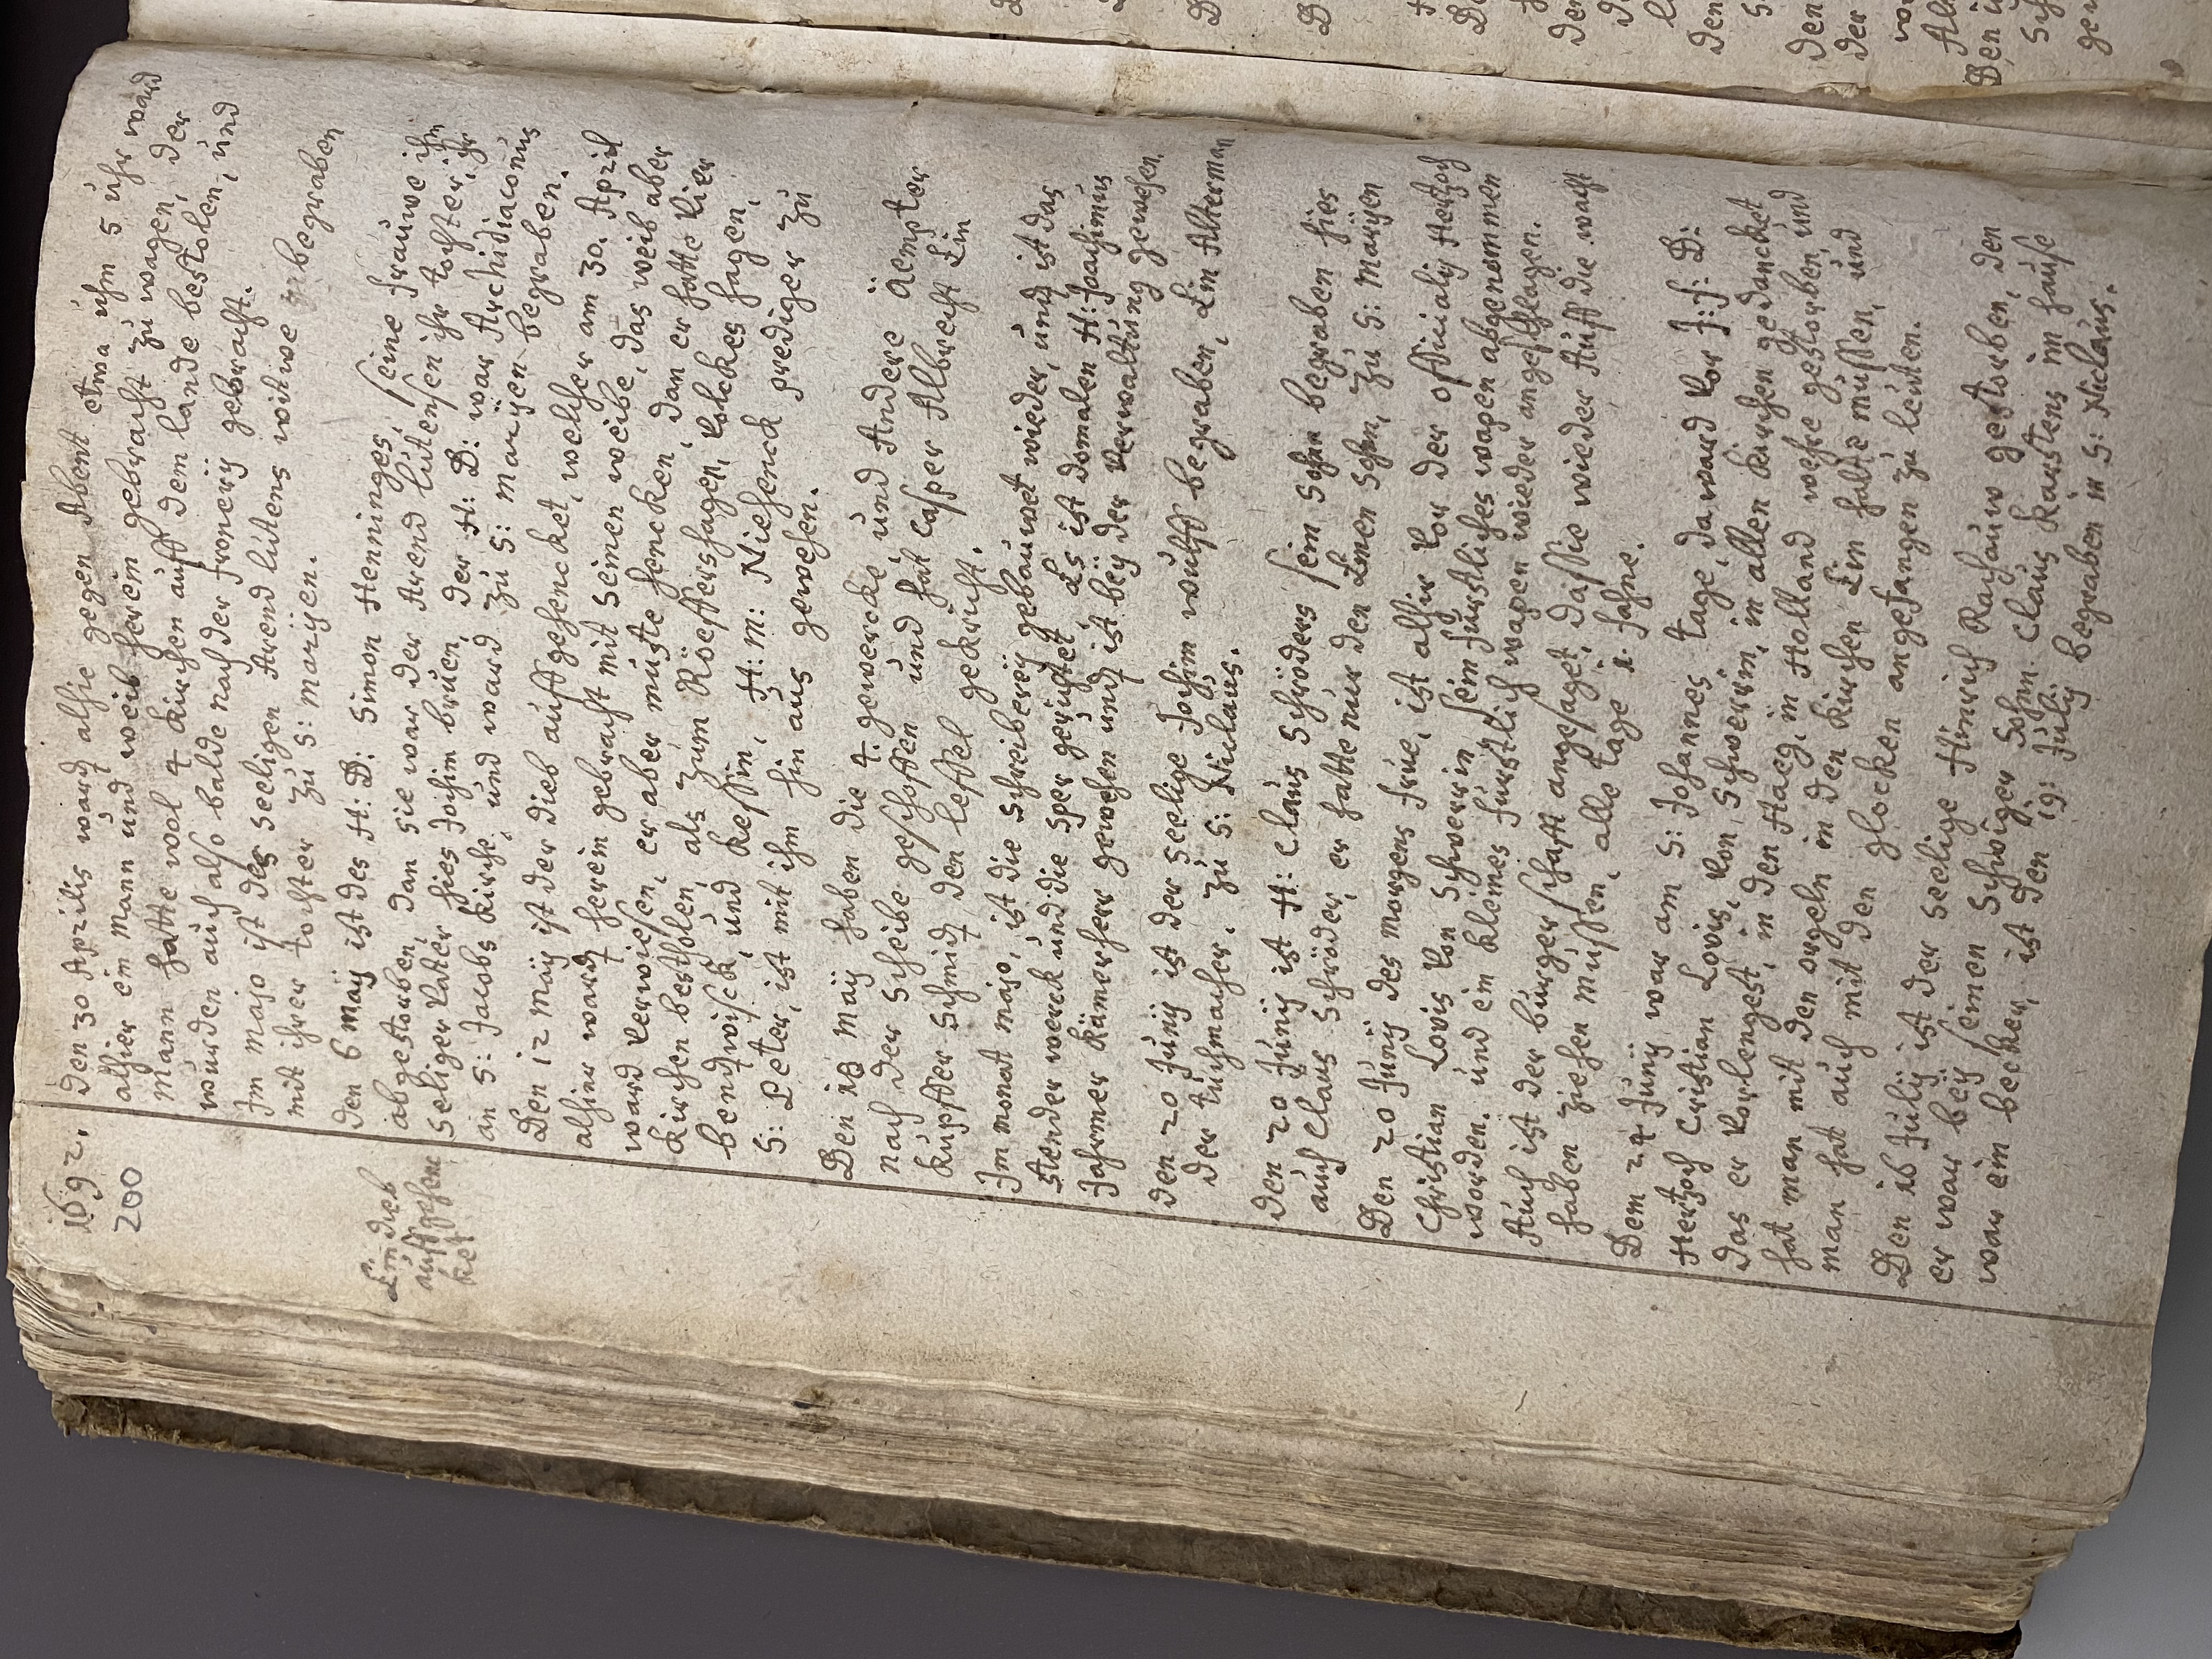 1692.
200
Den 30 Aprilis ward alhie gegen Abent etwa ühm 5 ühr ward
alhier ein Mann und weib herein gebracht zu wagen, der
Mann hatte wol 4 kirchen auff dem lande bestolen, und
würden auch also balde nach der fronerij gebracht.
Im majo ist des seeligen Arend lütens witwe begraben
mit ihrer tochter zu S: marijen.
den 6 Maij ist des H: D: Simon Henninges, seine frauwe ihm
abgestorben, dan sie war der Arend lütensen ihr tochter, ihr
Seeliger vater hies Jochim brüen, der H: D: war Archidiaconus
an S: Jacobs kirche, und ward zu S: marijen begraben.
Ein dieb
auffgehenc
ket
Den 12 Maij ist der dieb auff gehencket, welcher am 30. April
alhier ward herein gebracht mit seinen weibe, das weib aber
ward verwiesen, er aber müste hencken, dan er hatte vier
kirchen bestholen, als zum Röeffershagen, Volckeshagen,
bendtwisck, und kessin, H: M: Niehenck prediger zu
S: Peter, ist mit ihm hin aus gewesen.
Den 18 Maij haben die 4. gewercke und Andere Aempter
nach der Scheibe geschossen und hat Casper Albrecht Ein
küpffer Schmidt den leffel gekricht.
Im monat majo, ist die Schreiberey gebauwet wieder, und ist das
Stender werck und die Sper gerichtet, Es ist domalen H: Joachimus
Jahrmer kämerherr gewesen und ist beij der verwaltung gewesen.
den 20 Junij ist der Seelige Jochim wulff begraben, Ein Alterman
der tuchmacher. zu S: Nicklaus.
den 20 Junij ist H: Claus Schröders sein Sohn begraben hies
auch Claus Schröder, er hatte nur den Einen Sohn, zu S: Marijen
Den 20 Junij des morgens früe, ist alhir vor der officialij Hertzoch
Christian Lovis von Schwerin sein fürstliches wapen abgenommen
worden. und ein kleines fürstlich wapen wieder angeschlagen.
Auch ist der bürgerschafft angesaget, das sie wieder Auff die wacht
haben ziehen müssen, alle tage 1. fahne.
Dem 24 Junij war am S: Johannes tage, da ward vor I: f: D:
Hertzoch Cristian Lovis, von Schwerrin, in allen kirchen gedancket
das er vorlengest, in den Haeg, in Holland wehre gestorben, und
hat man mit den orgeln in den kirchen Ein halte müssen, und
man hat auch mit den glocken angefangen zu leuten.
Den 16 Julij ist der Seelige Hinrich Rachauw gestorben, den
er war beij seinen Schwiger Sohn Claus karstens im hause
war ein becker, ist den 19: Julij begraben in S: Niclaus.